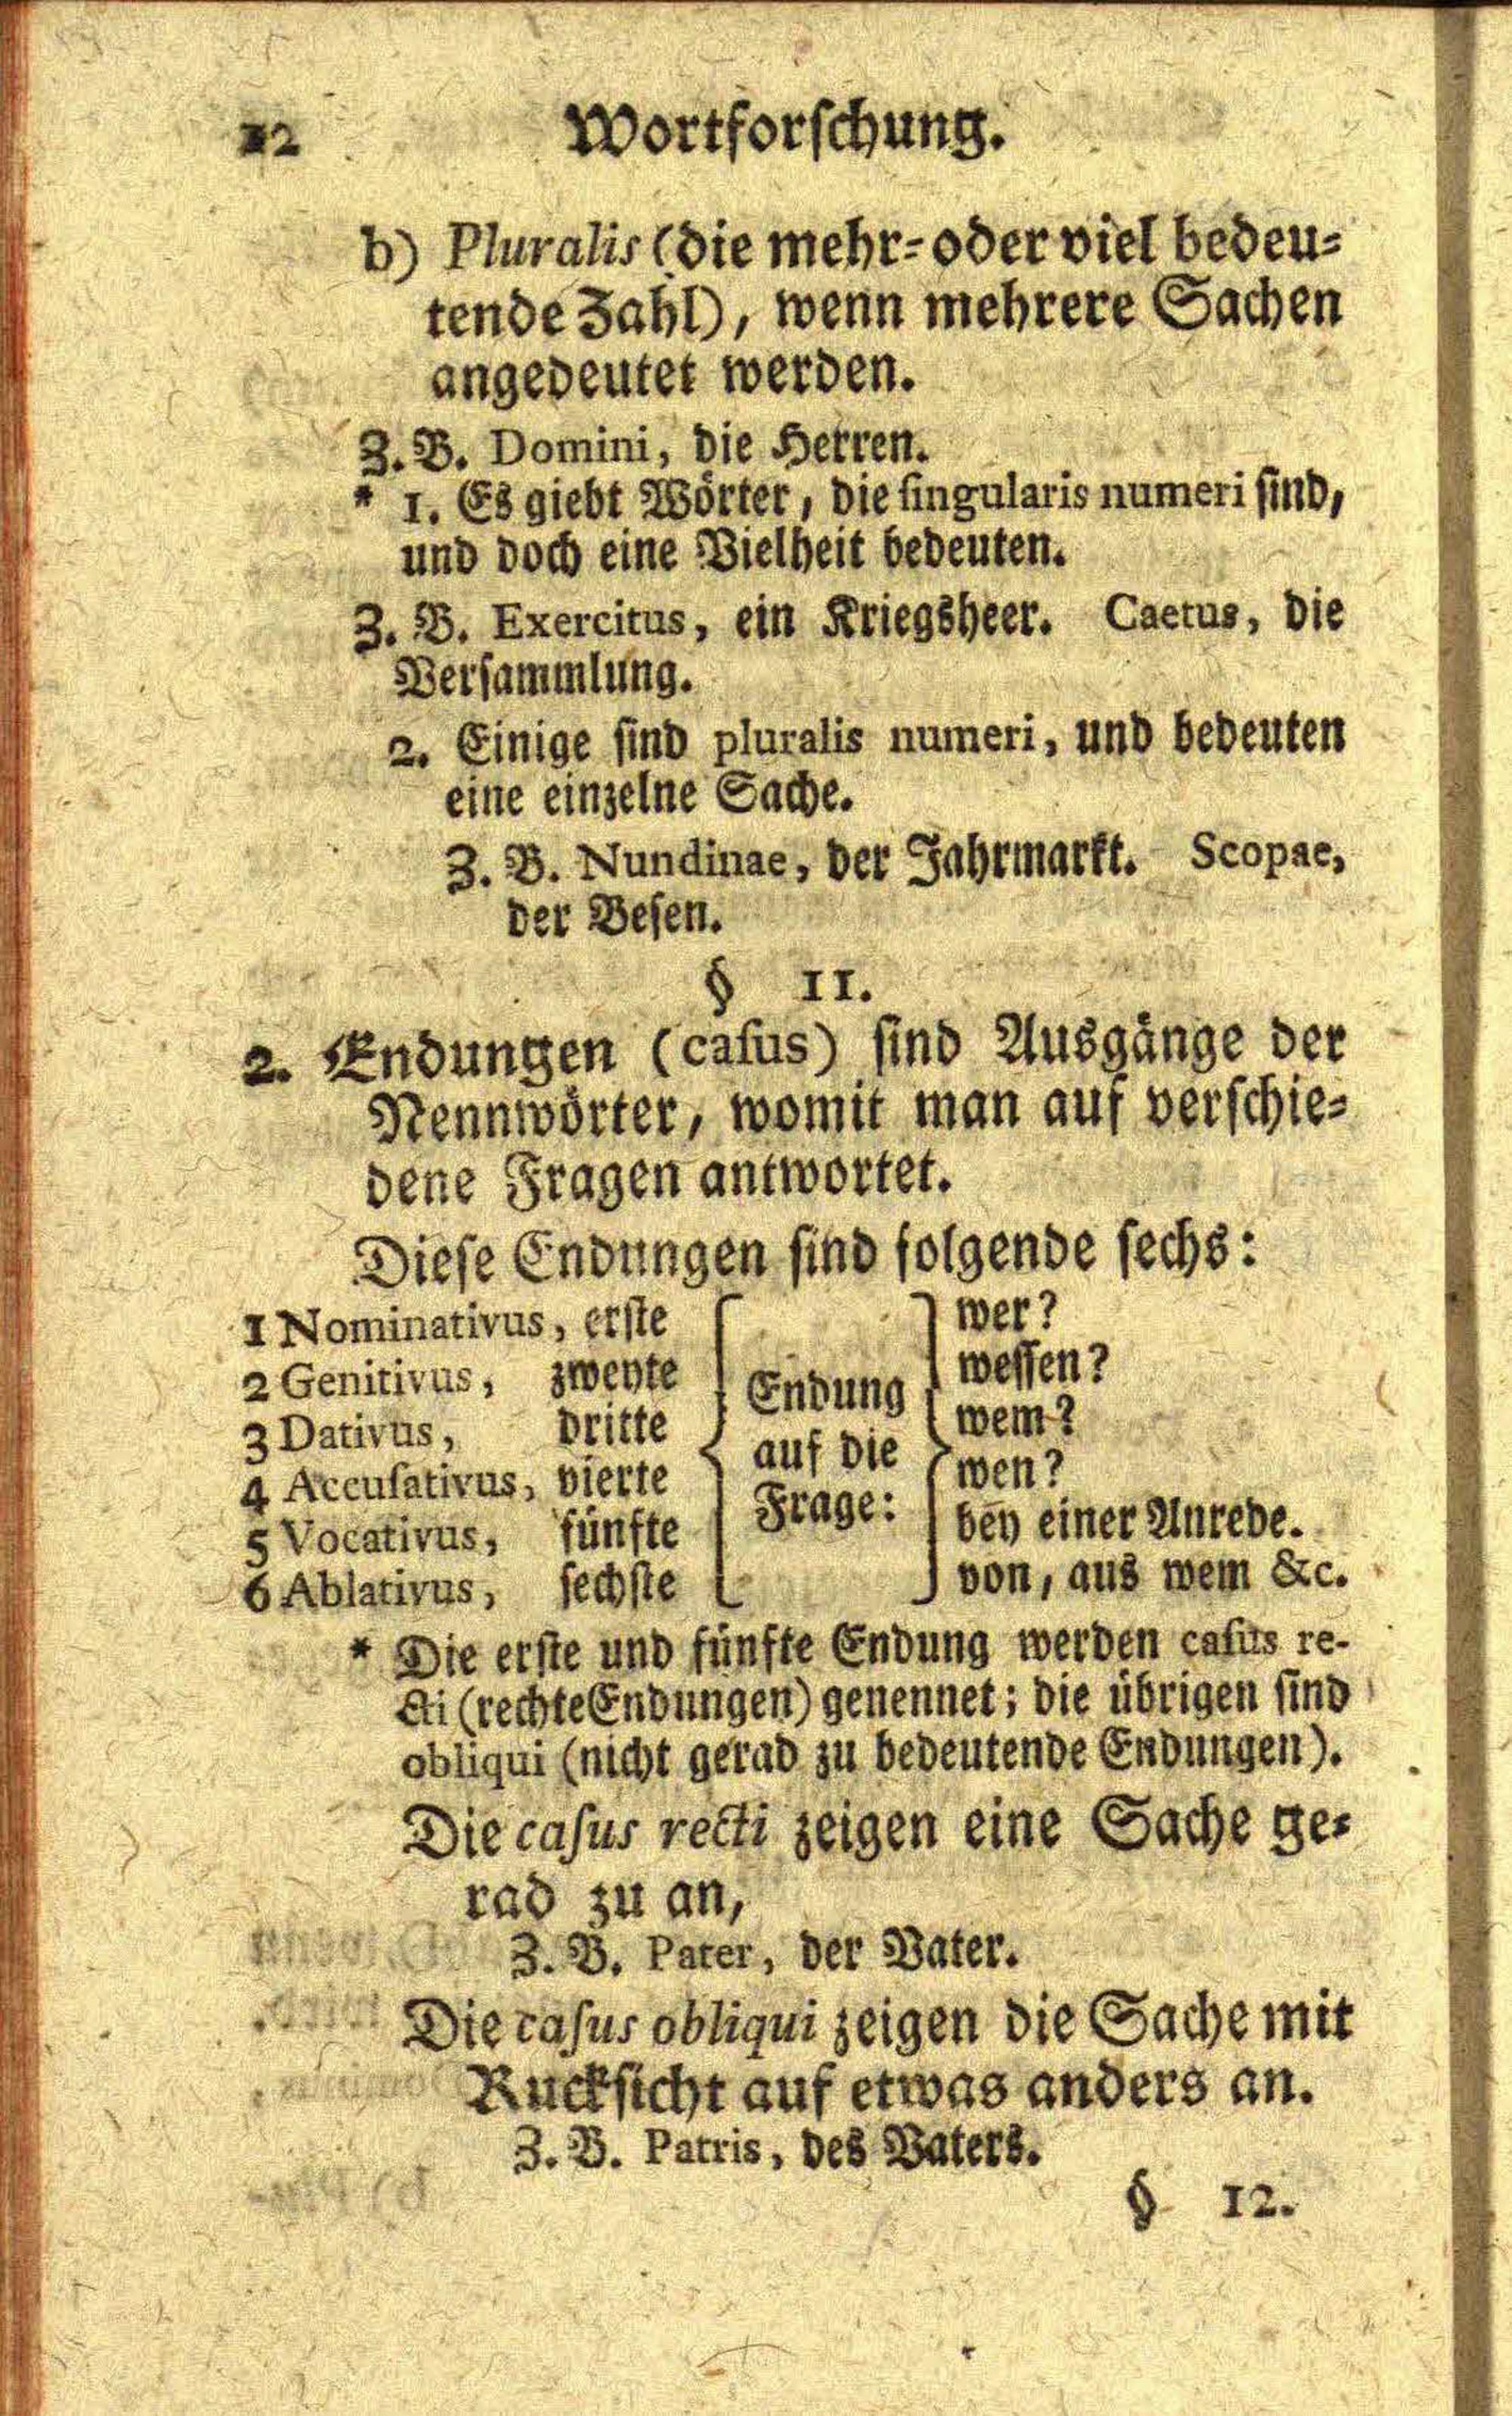 12 Wortforschung.
b) Pluralis (die mehr-oder viel bedeu-
tende Zahl), wenn mehrere Sachen
angedeutet werden.
Z. B. Domini, die Herren.
* 1. Es giebt Wörter, die singularis numeri sind,
und doch eine Vielheit bedeuten.
Z. B. Exercitus, ein Kriegsheer. Caetus, die
Versammlung.
2. Einige sind pluralis numeri, und bedeuten
eine einzelne Sache.
Z. B. Nundinae, der Jahrmarkt. Scopae,
der Besen.
§ 11.
2. Endungen (casus) sind Ausgänge der
Nennwörter, womit man auf verschie-
dene Fragen antwortet.
Diese Endungen sind folgende sechs:
1 Nominativus, erste
2 Genitivus, zweyte
3 Dativus, dritte
4 Accusativus, vierte
5 Vocativus, fünfte
6 Ablativus, sechste
Endung
auf die
Frage:
wer?
wessen?
wem?
wen?
bey einer Anrede.
von, aus wem &c.
* Die erste und fünfte Endung werden casus re-
cti (rechte Endungen) genennet; die übrigen sind
obliqui (nicht gerad zu bedeutende Endungen).
Die casus recti zeigen eine Sache ge-
rad zu an,
Z. B. Pater, der Vater.
Die casus obliqui zeigen die Sache mit
Rucksicht auf etwas anders an.
Z. B. Patris, des Vaters.
§ 12.